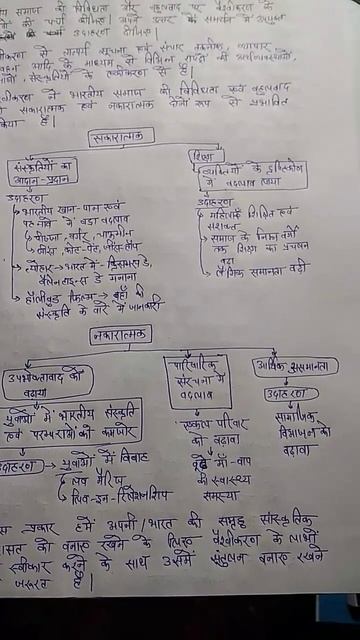 समाज की विविधता और बहुलवाद पर वैश्वीकरण के
की चर्चा कीजिए। अपने उत्तर के समर्थन में उपयुक्त
उदाहरण दीजिए।
से तात्पर्य सूचना एवं संचार तकनीक, व्यापार
आदि के माध्यम से विभिन्न राष्ट्रों की अर्थव्यवस्थाओं,
संस्कृतियों के एकीकरण से है।
ने भारतीय समाज की विविधता एवं बहुलवाद
सकारात्मक एवं नकारात्मक दोनों रूप से प्रभावित
किया है।
सकारात्मक
संस्कृतियों का
आदान-प्रदान
शिक्षा
व्यक्तियों के दृष्टिकोण
में बदलाव
उदाहरण
भारतीय खान-पान एवं
में बड़ा बदलाव
पिज्जा, बर्गर,
जींस, कोट-पेंट,
त्यौहार → भारत में - क्रिसमस डे,
वैलेनटाइन्स डे मनाना
हॉलीवुड फिल्म → वहाँ की
संस्कृति के बारे में जानकारी
उदाहरण
महिलाएँ शिक्षित एवं
सशक्त
समाज के निम्न वर्गों
तक शिक्षा का प्रचलन
बढ़ा
लैंगिक समानता बढ़ी
नकारात्मक
उपभोक्तावाद को
बढ़ावा
पारिवारिक
संरचना में
बदलाव
आर्थिक असमानता
युवाओं में भारतीय संस्कृति
एवं परम्पराओं को कमजोर
उदाहरण
सामाजिक
विभाजन को
बढ़ावा
एकल परिवार
को बढ़ावा
बूढ़े माँ-बाप
की स्वास्थ्य
समस्या
उदाहरण → युवाओं में विवाह
लव मैरिज
लिव-इन-रिलेशनशिप
प्रकार हमें अपनी/भारत की समृद्ध सांस्कृतिक
को बनाए रखने के लिए वैश्वीकरण के लाभों
स्वीकार करने के साथ उसमें संतुलन बनाए रखने
जरूरत है।